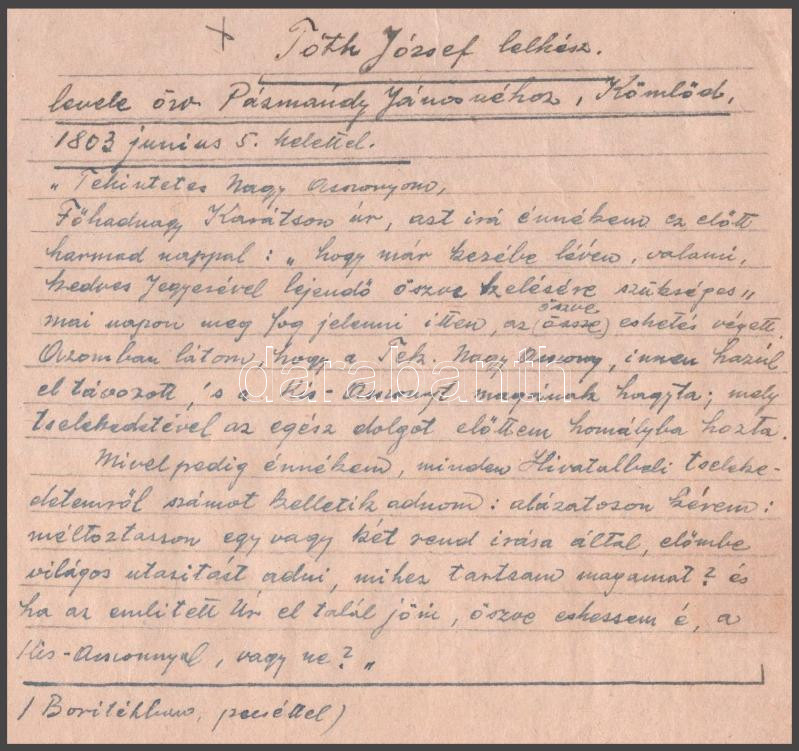 Tóth József lelkész.
levele özv Pázmándy Jánosnéhoz, Kömlőd,
1803 junius 5. kelettel.
„Tekintetes Nagy Asszonyom,
Főhadnagy Karátson úr, azt irá énnékem ez előtt
harmad nappal: „hogy már kezébe lévén, valami,
kedves Jegyesével lejendő öszve kelésére szükséges„
mai napon meg fog jelenni itten, az (össze) eshetés végett.
öszve
Azomban látom, hogy a Tek. Nagy Asszony, innen hazúl
el távozott, 's a Kis-Asszonyt magának hagyta; mely
tselekedetével az egész dolgot előttem homályba hozta.
Mivel pedig énnékem, minden Hivatalbeli tseleke-
detemről számot kelletik adnom: alázatoson kérem:
méltoztasson egy vagy két rend irása által, előmbe
világos utasitást adni, mihez tartsam magamat? és
ha az emlitett Úr el talál jőni, öszve eshessem é, a
Kis-Asszonnyal, vagy ne?„
/Boritékban, pecséttel)
darabanth